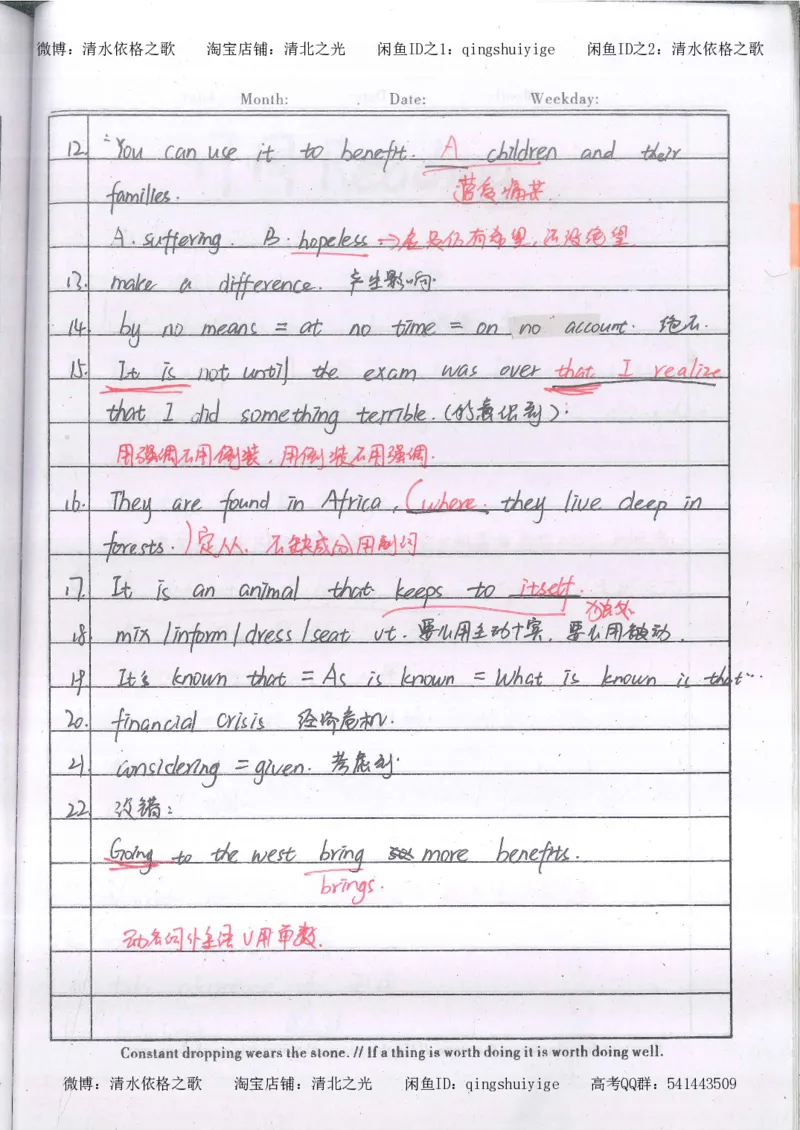 微博：清水依格之歌 淘宝店铺：清北之光 闲鱼ID之1：qingshuiyige 闲鱼ID之2：清水依格之歌
Month: Date: Weekday:
12. "You can use it to benefit A children and their
families. 遭受痛苦
A. suffering. B. hopeless → 应是仍有希望,还没绝望.
13. make a difference. 产生影响.
14. by no means = at no time = on no account. 绝不.
15. It is not until the exam was over that I realize
that I did something terrible. (的意识到):
用强调不用倒装,用倒装不用强调.
16. They are found in Africa, (where they live deep in
forests.) 定从, 不缺成分用副词
17. It is an animal that keeps to itself.
独处.
18. mix / inform / dress / seat vt. 要么用主动+宾, 要么用被动.
19. It's known that = As is known = What is known is that…
20. financial crisis 经济危机.
21. considering = given. 考虑到.
22. 改错:
Going to the west bring more benefits.
brings.
动名词作主语V用单数.
Constant dropping wears the stone. // If a thing is worth doing it is worth doing well.
微博：清水依格之歌 淘宝店铺：清北之光 闲鱼ID：qingshuiyige 高考QQ群：541443509